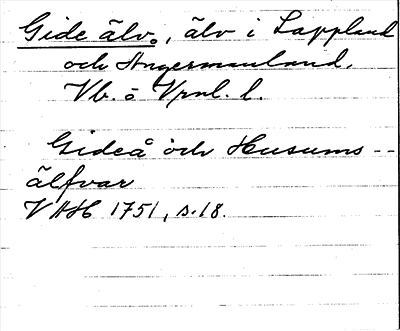 Gide älv, älv i Lappland
och Ångermanland.
Vb. o Vrnl. l.
Gideå och Husums --
älfvar
VAH 1751, s. 18.